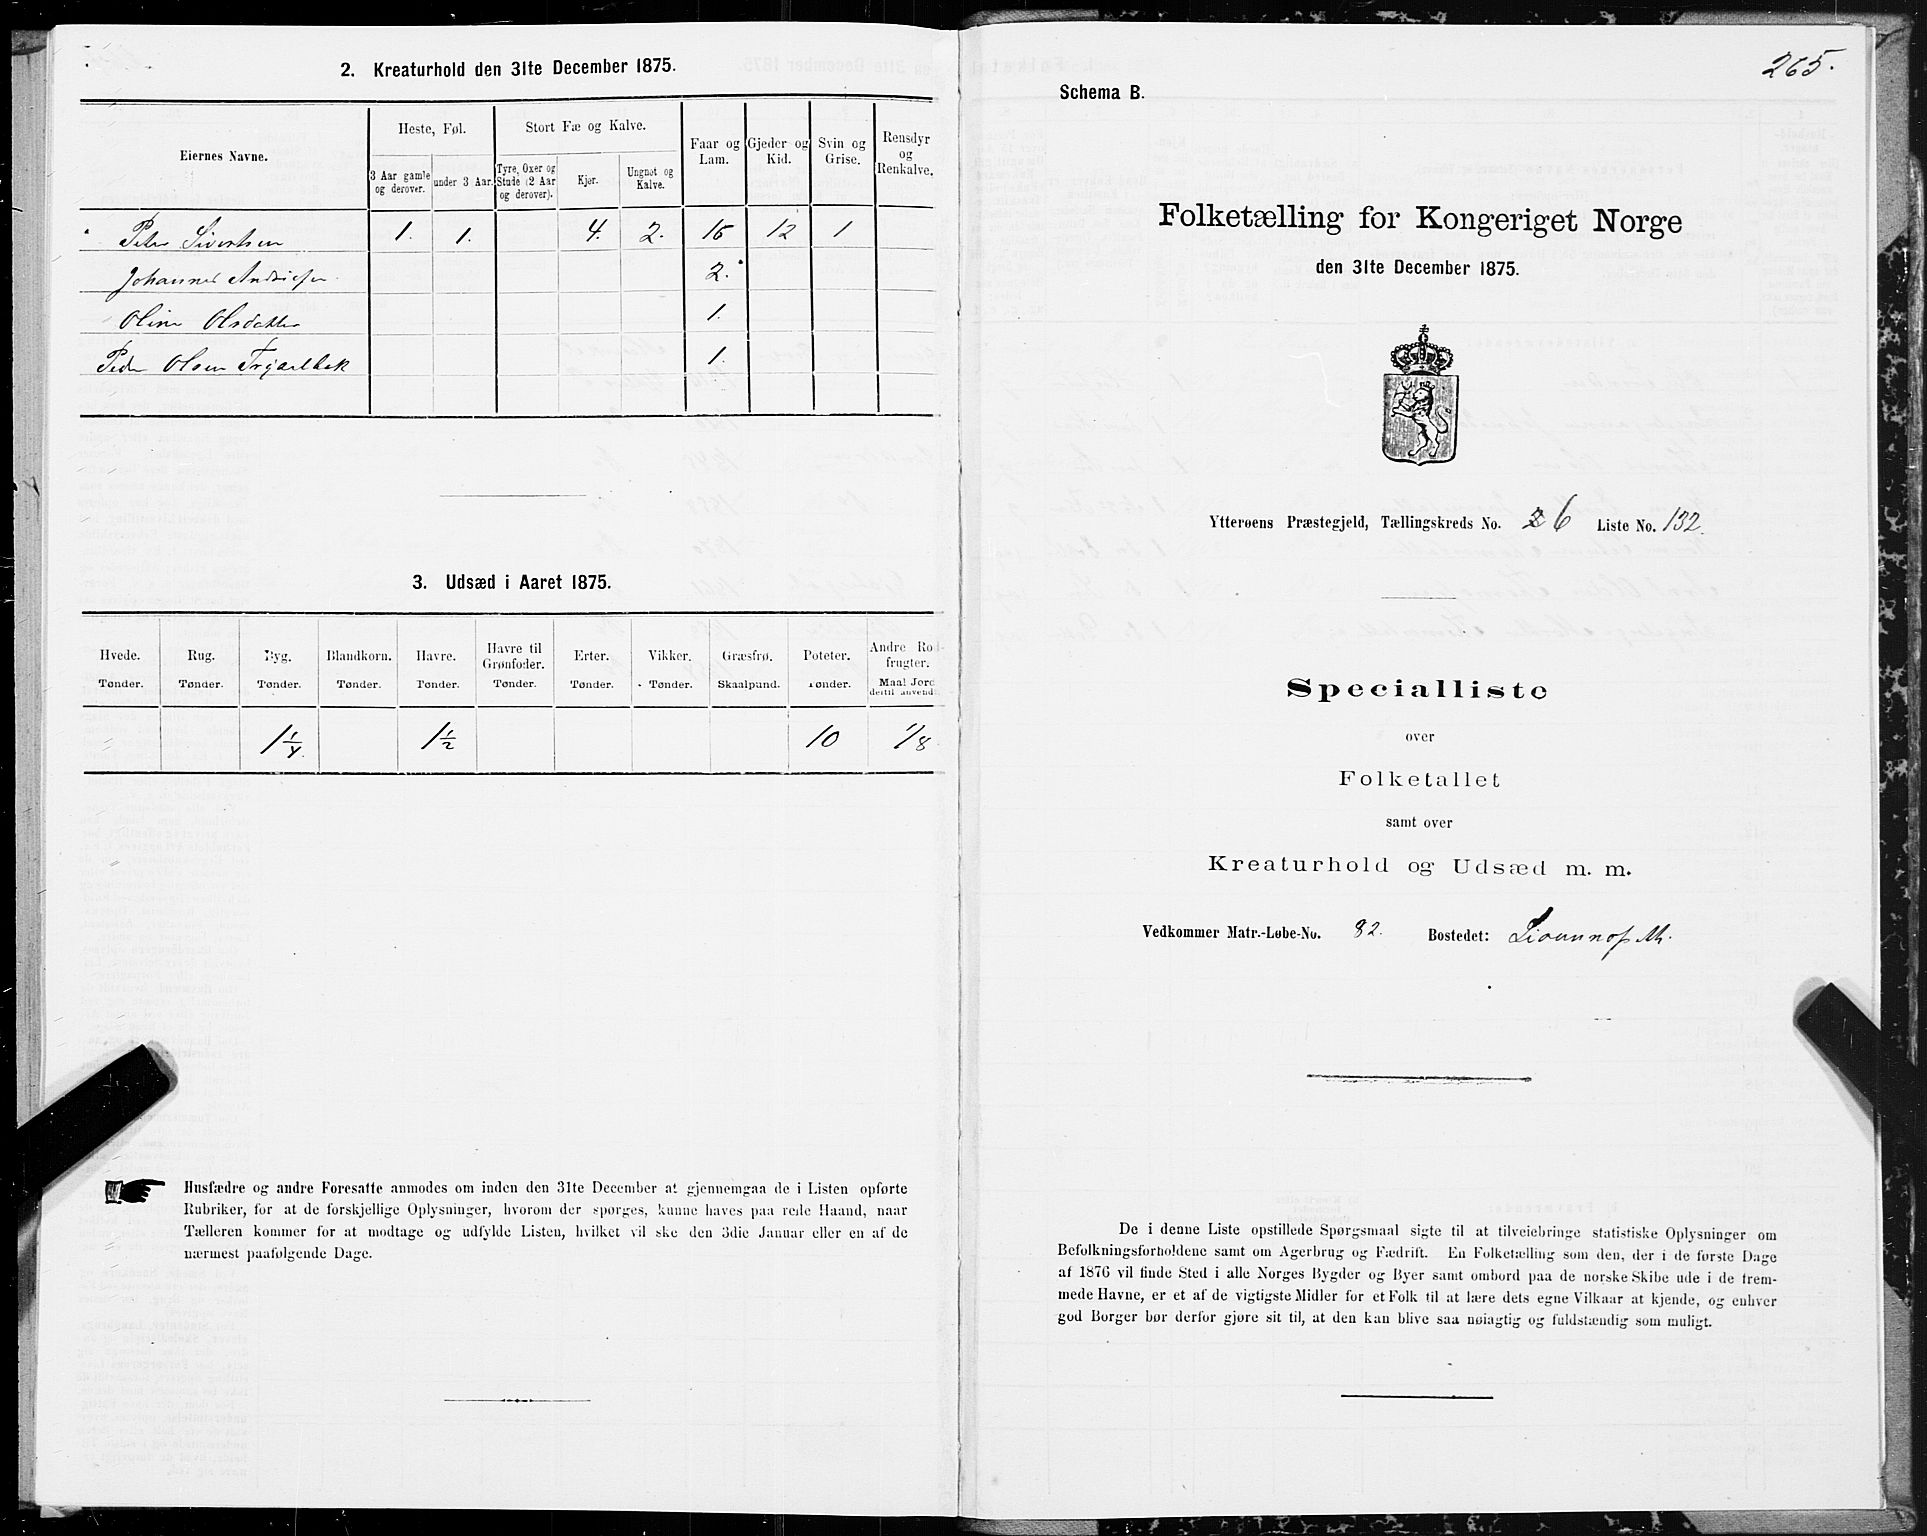 2. Kreaturhold den 31te December 1875.
Eiernes Navne.
Heste, Føl.
3 Aar gamle og derover.
under 3 Aar.
Stort Fæ og Kalve.
Tyre, Oxer og Stude (2 Aar og derover).
Kjør.
Ungnøt og Kalve.
Faar og Lam.
Gjeder og Kid.
Svin og Grise.
Rensdyr og Renkalve.
Peter Sivertsen 1. 1. 4. 2. 16 12 1
Johannes Andriesen 2.
Oline Olsdatter 1.
Peder Olsen 1.
3. Udsæd i Aaret 1875.
Hvede. Rug. Byg. Blandkorn. Havre. Havre til Grønfoder. Erter. Vikker. Græsfrø. Poteter. Andre Rodfrugter.
Tønder. Tønder. Tønder. Tønder. Tønder. Tønder. Tønder. Tønder. Skaalpund. Tønder. Maal Jord dertil anvendt.
1 1/4 1 1/2 10 1/8
Husfædre og andre Foresatte anmodes om inden den 31te December at gjennemgaa de i Listen opførte
Rubriker, for at de forskjellige Oplysninger, hvorom der spørges, kunne haves paa rede Haand, naar
Tælleren kommer for at modtage og udfylde Listen, hvilket vil ske den 3die Januar eller en af de
nærmest paafølgende Dage.
265.
Schema B.
Folketælling for Kongeriget Norge
den 31te December 1875.
Ytterøens Præstegjeld, Tællingskreds No. 6 Liste No. 132.
Specialliste
over
Folketallet
samt over
Kreaturhold og Udsæd m. m.
Vedkommer Matr.-Løbe-No. 82. Bostedet:
De i denne Liste opstillede Spørgsmaal sigte til at tilveiebringe statistiske Oplysninger om
Befolkningsforholdene samt om Agerbrug og Fædrift. En Folketælling som den, der i de første Dage
af 1876 vil finde Sted i alle Norges Bygder og Byer samt ombord paa de norske Skibe ude i de frem-
mede Havne, er et af de vigtigste Midler for et Folk til at lære dets egne Vilkaar at kjende, og enhver
god Borger bør derfor gjøre sit til, at den kan blive saa nøiagtig og fuldstændig som muligt.